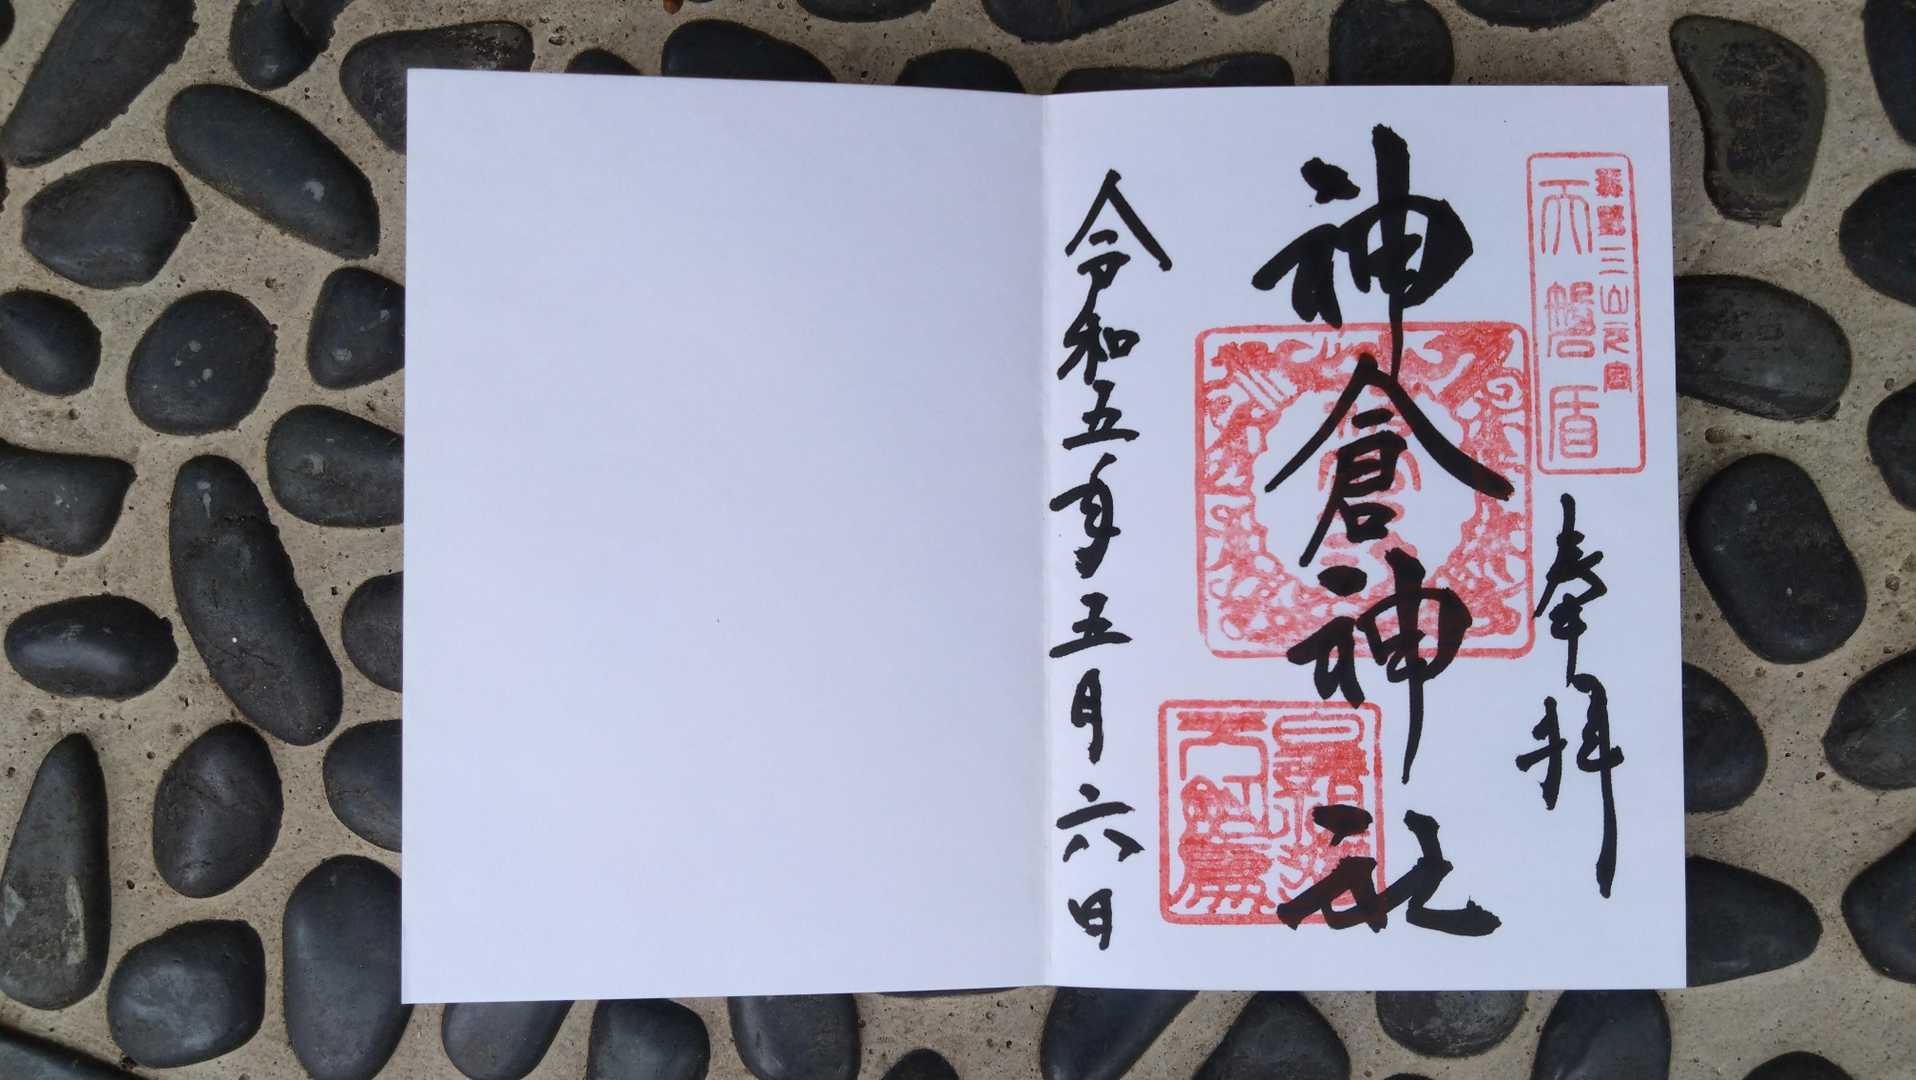 熊野三山元宮
天磐盾
奉拝
神倉神社
令和五年五月六日